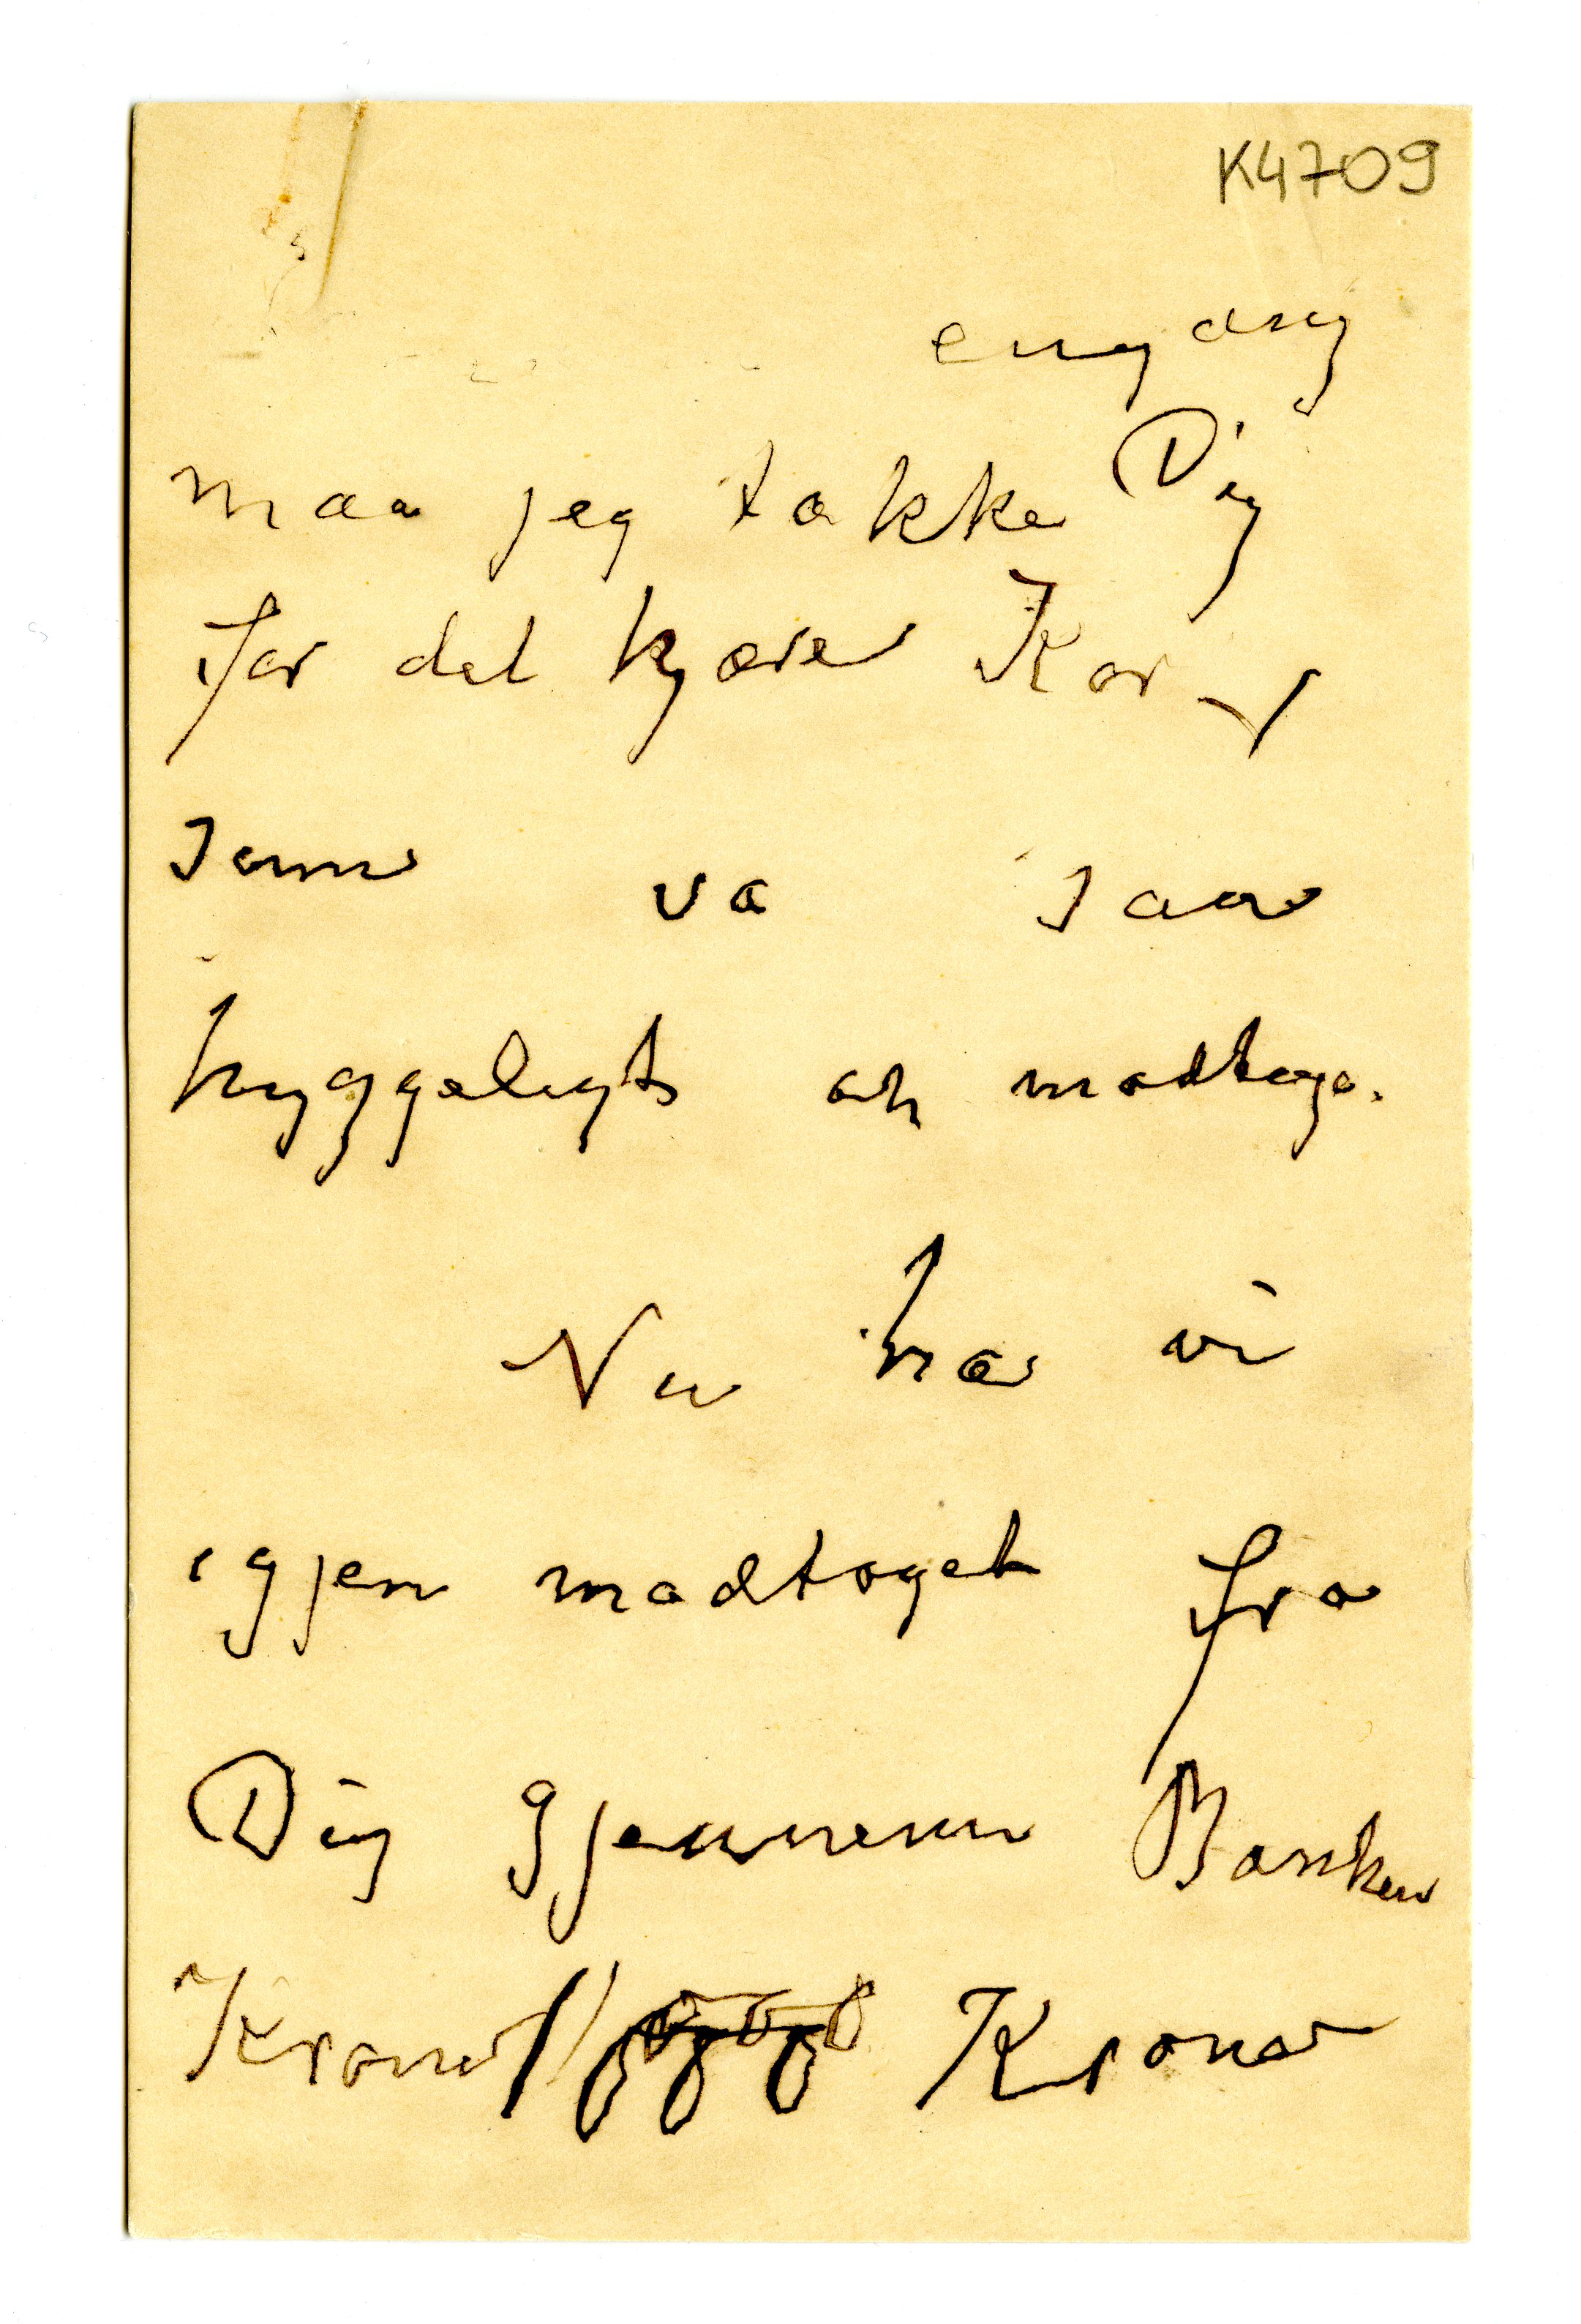 K4709
engang
maa jeg takke Dig
for det kjære Kor-
som va saa
hyggeligt at modtage.
Nu ha vi
igjen modtaget fra
Dig gjennem Banken
Kroner Kroner